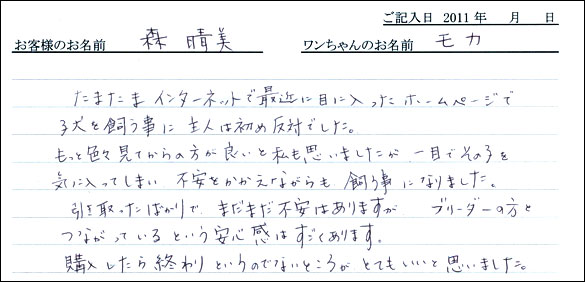 ご記入日 2011 年 月 日
お客様のお名前 森 晴美 ワンちゃんのお名前 モカ
たまたま インターネットで最近に目に入ったホームページで
子犬を飼う事に 主人は初め反対でした。
もっと色々見てからの方が良いと私も思いましたが 一目でその子を
気に入ってしまい 不安をかかえながらも 飼う事になりました。
引き取ったばかりで、まだまだ不安はありますが ブリーダーの方と
つながっているという安心感はすごくあります。
購入したら終わりというのでないところが とてもいいと思いました。